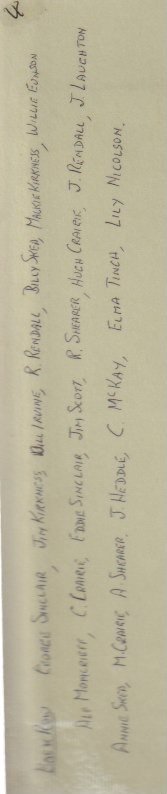 4
BACK ROW GEORGE SINCLAIR, JIM KIRKNESS, BILL IRVINE, R. RENDALL, BILLY SKED, MAURICE KIRKNESS, WILLIE EUNSON
ALF MONCRIEFF, C. CRAIRIE, EDDIE SINCLAIR, JIM SCOTT, R. SHEARER, HUGH CRAIRIE, J. RENDALL, J. LAUGHTON
ANNIE SKED, M. CRAIRIE, A. SHEARER, J. HEDDLE, C. MCKAY, ELMA TINCH, LILY NICOLSON.